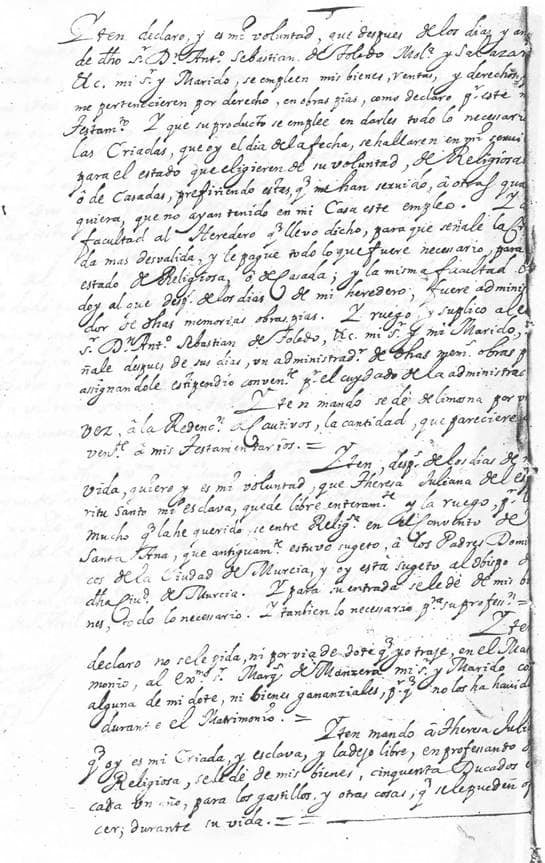 Yten declaro, y es mi voluntad, que despues de los dias y an
de dho sr. Dn. Anto. Sebastian de Toledo Mola. y Salazar
&c. mi sr. y Marido, se empleen mis bienes, rentas, y derechos
me pertenecieren por derecho, en obras pias, como declaro pr. este m
Testamto. Y que su producto se emplee en darles todo lo necessari
las Criadas, que oy el dia de la fecha, se hallaren en mi servi
para el estado que eligieren de su voluntad, de Religiosas
ò de Casadas, prefiriendo estas, q me han servido, â otras qua
quiera, que no ayan tenido en mi Casa este empleo. Y d
facultad al Heredero q llevo dicho, para que señale la Cr
da mas desvalida, y le pague todo lo que fuere necesario, para
estado de Religiosa, ò de Casada; y la misma facultad
doy al que desps. de los dias de mi heredero, fuere adminis
dor de dhas memorias obras pias. Y ruego, y suplico al e
sr. Dn. Anto. Sebastian de Toledo, &c. mi Sr. y mi Marido,
ñale despues de sus dias, un administradr. de dhas mems. obras p
assignandole estipendio convente. pr. el cuydado de la administrac
Yten mando se dé de limosna por v
vez, â la Redencn. de Cautivos, la cantidad, que pareciere
vente. â mis Testamentarios. =
Yten, desps. de los dias de m
vida, quiero y es mi voluntad, que Theresa Juliana del es
ritu Santo mi esclava, quede libre enteramte. y la ruego, pr. l
mucho q la he querido, se entre Religsa. en el Convento de
Santa Ana, que antiguamte. estuvo sugeto, â los Padres Domi
cos de la Ciudad de Murcia, y oy esta sugeto al obispo d
dha Ciud. de Murcia. Y para su entrada se le dé de mis b
nes, todo lo necesario. Y tanbien lo necesario pra. su profesn. =
Yten
declaro no se le pida, ni por via de dote q yo traje, en el Mat
monio, al Exmo. sr. Marqs. de Manzera mi sr. y Marido co
alguna de mi dote, ni bienes gananziales, pr. q no los ha havid
durante el Matrimonio. =
Yten mando â Theresa Juli
q oy es mi Criada, y esclava, y la dejo libre, en professando d
Religiosa, se le dé de mis bienes, cinquenta Ducados
cada un año, para los gastillos, y otras cosas, q se le pueden of
cer; durante su vida. = =